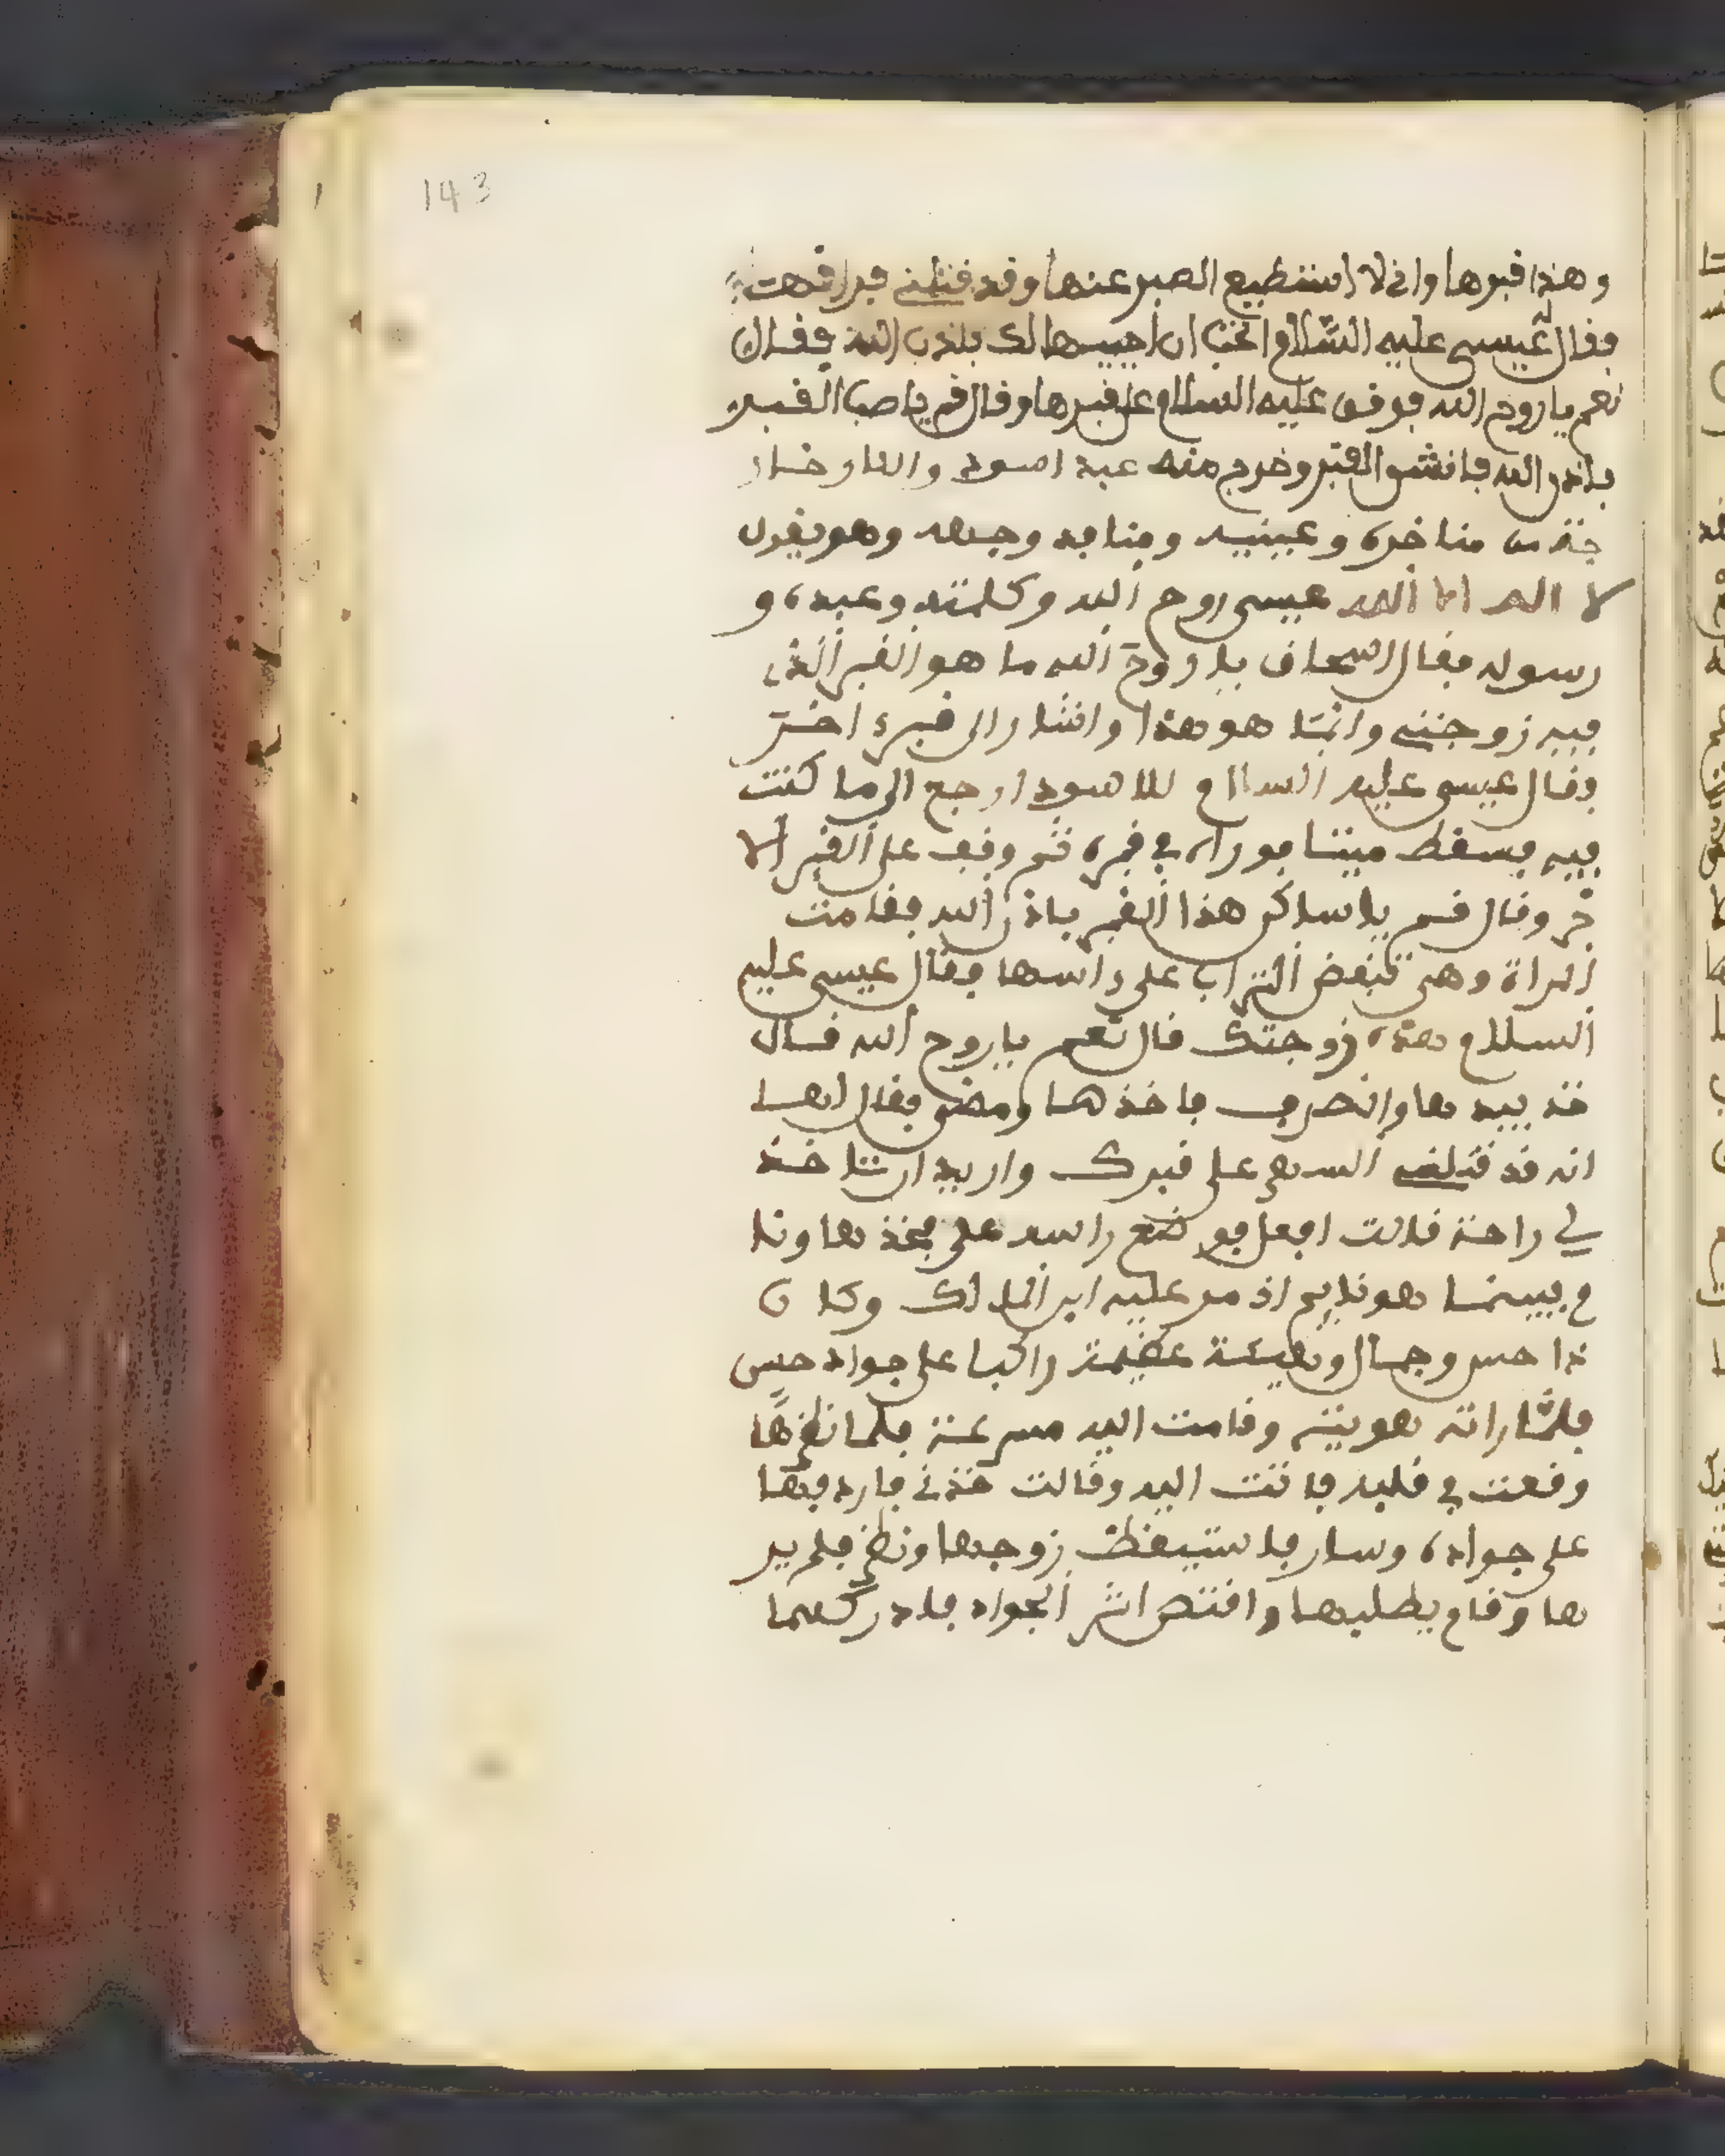 143
وهذا قبرها واني لا استطيع الصبر عنها وقد قتلني فراقها
فقال له عيسى عليه السلام اتحب ان احييها لك باذن الله فقال
نعم يا روح الله فوقف عليه السلام على قبرها وقال قم يا صاحب القبر
باذن الله فانشق القبر وخرج منه عبد اسود والنار خار
جة من مناخره وعينيه ومنافذ وجهه وهو يقول
لا اله الا الله عيسى روح الله وكلمته وعبده و
رسوله فقال اسحاق يا روح الله ما هو القبر الذي
فيه زوجتي وانما هو هذا واشار الى قبر اخر
فقال عيسى عليه السلام للاسود ارجع الى ما كنت
فيه فسقط ميتا فوراه في قبره ثم وقف على القبر الا
خر وقال قم يا ساكن هذا القبر باذن الله فقامت
المراة وهي تنفض التراب على راسها فقال عيسى عليه
السلام هذه زوجتك قال نعم يا روح الله قال
خذ بيدها وانصرف فاخذها ومضى فقال لها
انه قد قتلني السهر على قبرك واريد ان تاخذ
لي راحة قالت افعل فوضع راسه على فخذها ونا
م فبينما هو نايم اذ مر عليه ابن الملك وكان
ذا حسن وجمال وهيئة عظيمة راكبا على جواد حسن
فلما راته هويته وقامت اليه مسرعة فلما نظرها
وقعت في قلبه فاتت اليه وقالت خذني فاردفها
على جواده وسار فاستيقظ زوجها ونظر فلم ير
ها وقام يطلبها واقتص اثر الجواد فادركهما